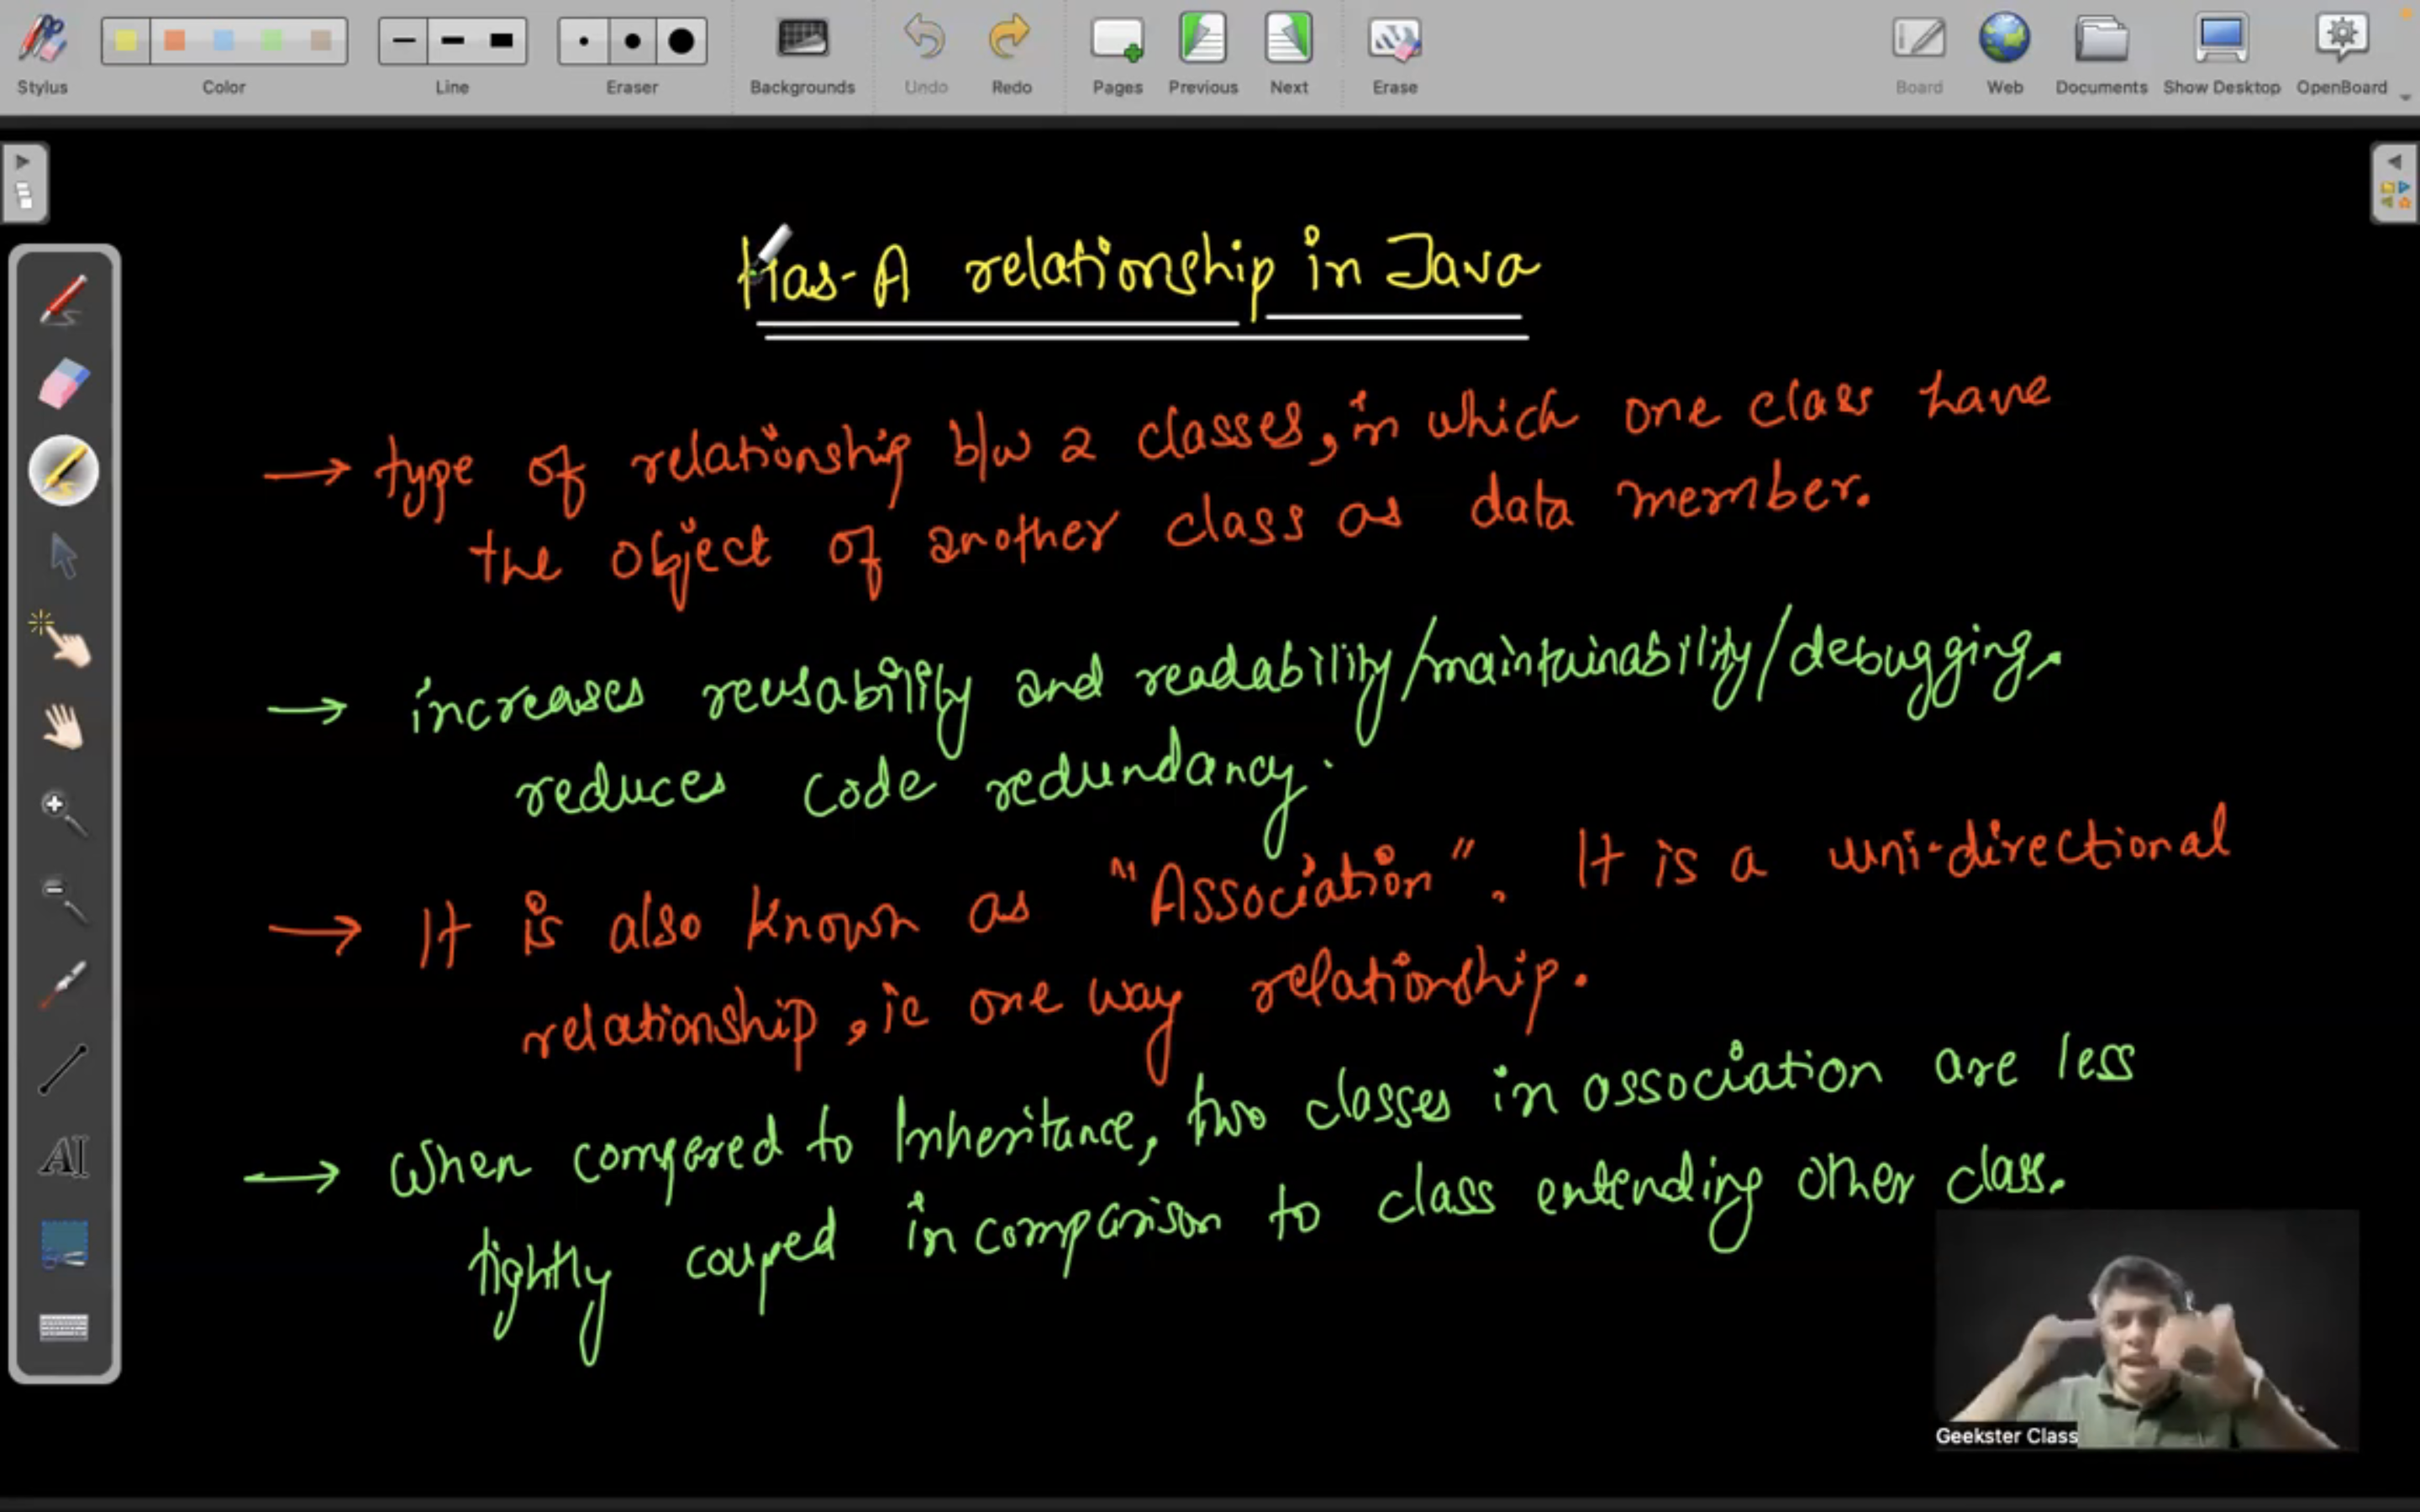 Stylus Color Line Eraser Backgrounds Undo Redo Pages Previous Next Erase Board Web Documents Show Desktop OpenBoard
Has-A relationship in Java
→ type of relationship b/w 2 classes, in which one class have
the object of another class as data member.
→ increases reusability and readability/maintainability/debugging.
reduces code redundancy.
→ It is also known as "Association". It is a uni-directional
relationship, ie one way relationship.
→ When compared to Inheritance, two classes in association are less
tightly couped in comparison to class extending other class.
AI
Geekster Class